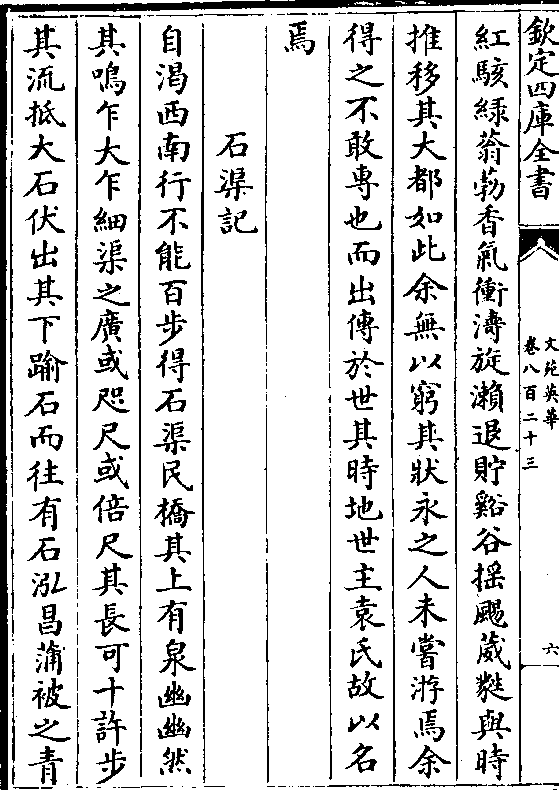 欽定四庫全書
文苑英華
卷八百二十三
六
紅駭緑蓊葧香氣衝濤旋瀨退貯谿谷揺飃葳蕤與時
推移其大都如此余無以窮其狀永之人未嘗游焉余
得之不敢專也而出傳於世其時地世主袁氏故以名
焉
石渠記
自渇西南行不能百步得石渠民橋其上有泉幽幽然
其鳴乍大乍細渠之廣或咫尺或倍尺其長可十許步
其流抵大石伏出其下踰石而往有石泓昌蒲被之青